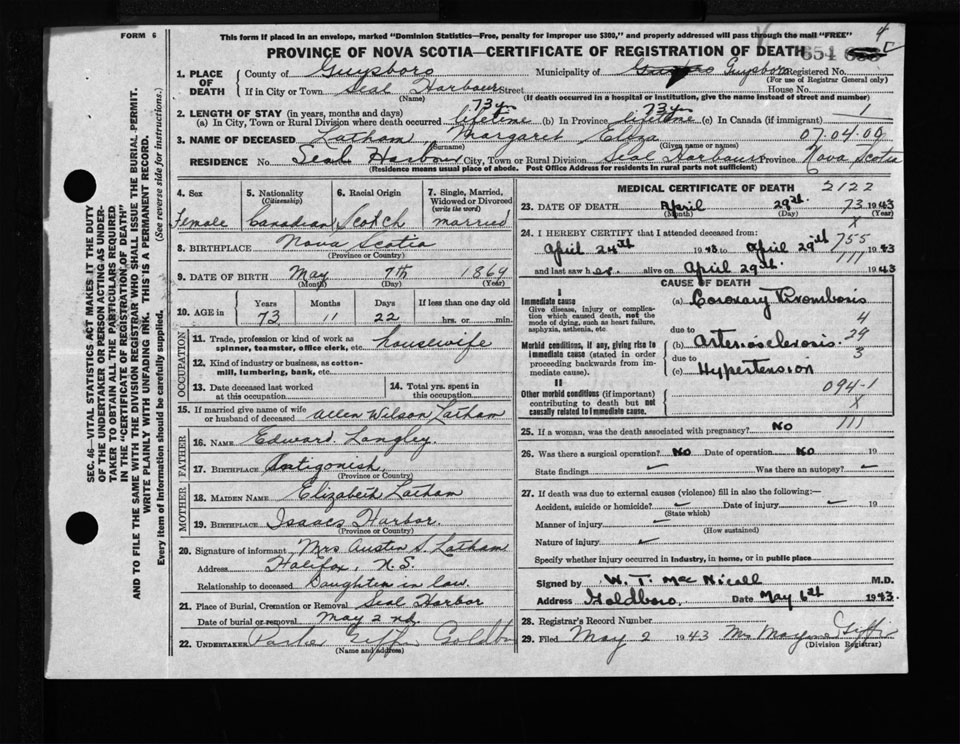 FORM 6
This form if placed in an envelope, marked "Dominion Statistics—Free, penalty for improper use $300," and properly addressed will pass through the mail "FREE"
4
PROVINCE OF NOVA SCOTIA—CERTIFICATE OF REGISTRATION OF DEATH 654
1. PLACE OF DEATH
County of Guysboro Municipality of Guysboro Registered No.
(For use of Registrar General only)
If in City or Town Seal Harbour Street House No.
(Name) (If death occurred in a hospital or institution, give the name instead of street and number)
2. LENGTH OF STAY (in years, months and days) 73 yr 73 yr
(a) In City, Town or Rural Division where death occurred lifetime (b) In Province lifetime (c) In Canada (if immigrant) 1
3. NAME OF DECEASED Latham Margaret Eliza 07.04.00
(Surname) (Given name or names)
RESIDENCE No. Seal Harbour City, Town or Rural Division Seal Harbour Province Nova Scotia
(Residence means usual place of abode. Post Office Address for residents in rural parts not sufficient)
4. Sex Female
5. Nationality (Citizenship) Canadian
6. Racial Origin Scotch
7. Single, Married, Widowed or Divorced (write the word) married
8. BIRTHPLACE Nova Scotia
(Province or Country)
9. DATE OF BIRTH May 7th 1869
(Month) (Day) (Year)
10. AGE in Years 73 Months 11 Days 22 If less than one day old hrs. or min.
OCCUPATION
11. Trade, profession or kind of work as spinner, teamster, office clerk, etc. housewife
12. Kind of industry or business, as cotton-mill, lumbering, bank, etc.
13. Date deceased last worked at this occupation
14. Total yrs. spent in this occupation
15. If married give name of wife or husband of deceased Allen Wilson Latham
FATHER
16. NAME Edward Langley.
17. BIRTHPLACE Antigonish
(Province or Country)
MOTHER
18. MAIDEN NAME Elizabeth Latham
19. BIRTHPLACE Isaacs Harbor.
(Province or Country)
20. Signature of informant Mrs Austin S. Latham
Address Halifax, N.S.
Relationship to deceased Daughter in law.
21. Place of Burial, Cremation or Removal Seal Harbor
Date of burial or removal May 2nd.
22. UNDERTAKER Parker Giffin Goldboro
(Name and address)
MEDICAL CERTIFICATE OF DEATH 2122
23. DATE OF DEATH April 29th. 73 1943
(Month) (Day) (Year)
X
24. I HEREBY CERTIFY that I attended deceased from:
April 24th 1943 to April 29th 755 1943
111
and last saw her alive on April 29th. 1943
CAUSE OF DEATH
I
Immediate cause
Give disease, injury or complication which caused death, not the mode of dying, such as heart failure, asphyxia, asthenia, etc.
(a) Coronary Thrombosis
4
due to
Morbid conditions, if any, giving rise to immediate cause (stated in order proceeding backwards from immediate cause).
29
(b) Arteriosclerosis
3
due to
(c) Hypertension
II
Other morbid conditions (if important) contributing to death but not causally related to immediate cause.
094-1
X
111
25. If a woman, was the death associated with pregnancy? No
26. Was there a surgical operation? No Date of operation No 19
State findings Was there an autopsy?
27. If death was due to external causes (violence) fill in also the following:—
Accident, suicide or homicide? Date of injury 19
(State which)
Manner of injury
(How sustained)
Nature of injury
Specify whether injury occurred in industry, in home, or in public place
Signed by W. T. Mac Nicall M.D.
Address Goldboro, Date May 6th 1943.
28. Registrar's Record Number
29. Filed May 2 1943 Mrs
(Division Registrar)
SEC. 46—VITAL STATISTICS ACT MAKES IT THE DUTY
OF THE UNDERTAKER OR PERSON ACTING AS UNDER-
TAKER TO OBTAIN ALL THE PARTICULARS REQUIRED
IN THE "CERTIFICATE OF REGISTRATION OF DEATH"
AND TO FILE THE SAME WITH THE DIVISION REGISTRAR WHO SHALL ISSUE THE BURIAL PERMIT.
WRITE PLAINLY WITH UNFADING INK. THIS IS A PERMANENT RECORD.
Every item of Information should be carefully supplied. (See reverse side for instructions.)